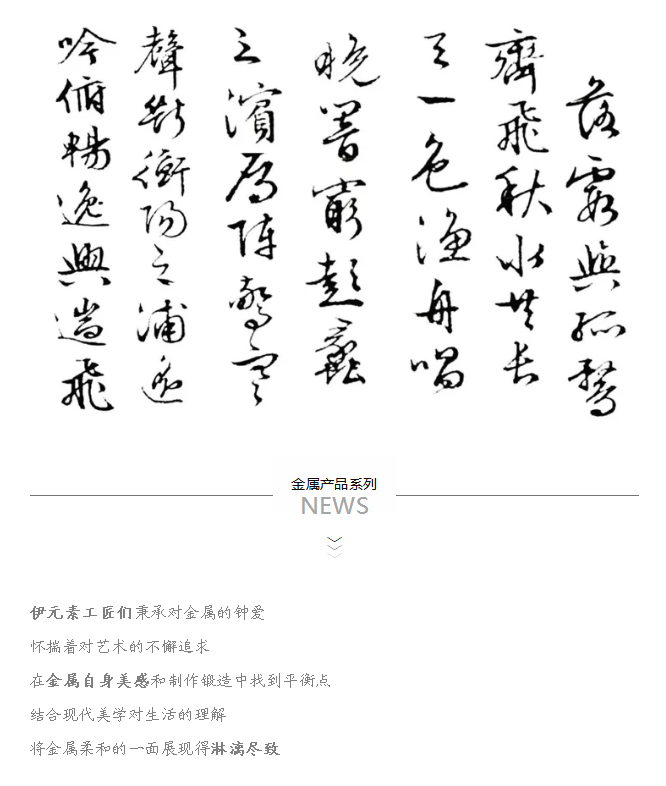 落霞與孤鶩
齊飛秋水共长
天一色渔舟唱
晚響窮彭蠡
之濱雁阵驚寒
聲断衡阳之浦遥
吟俯暢逸興遄飛
金属产品系列
NEWS
伊元素工匠们秉承对金属的钟爱
怀揣着对艺术的不懈追求
在金属自身美感和制作锻造中找到平衡点
结合现代美学对生活的理解
将金属柔和的一面展现得淋漓尽致